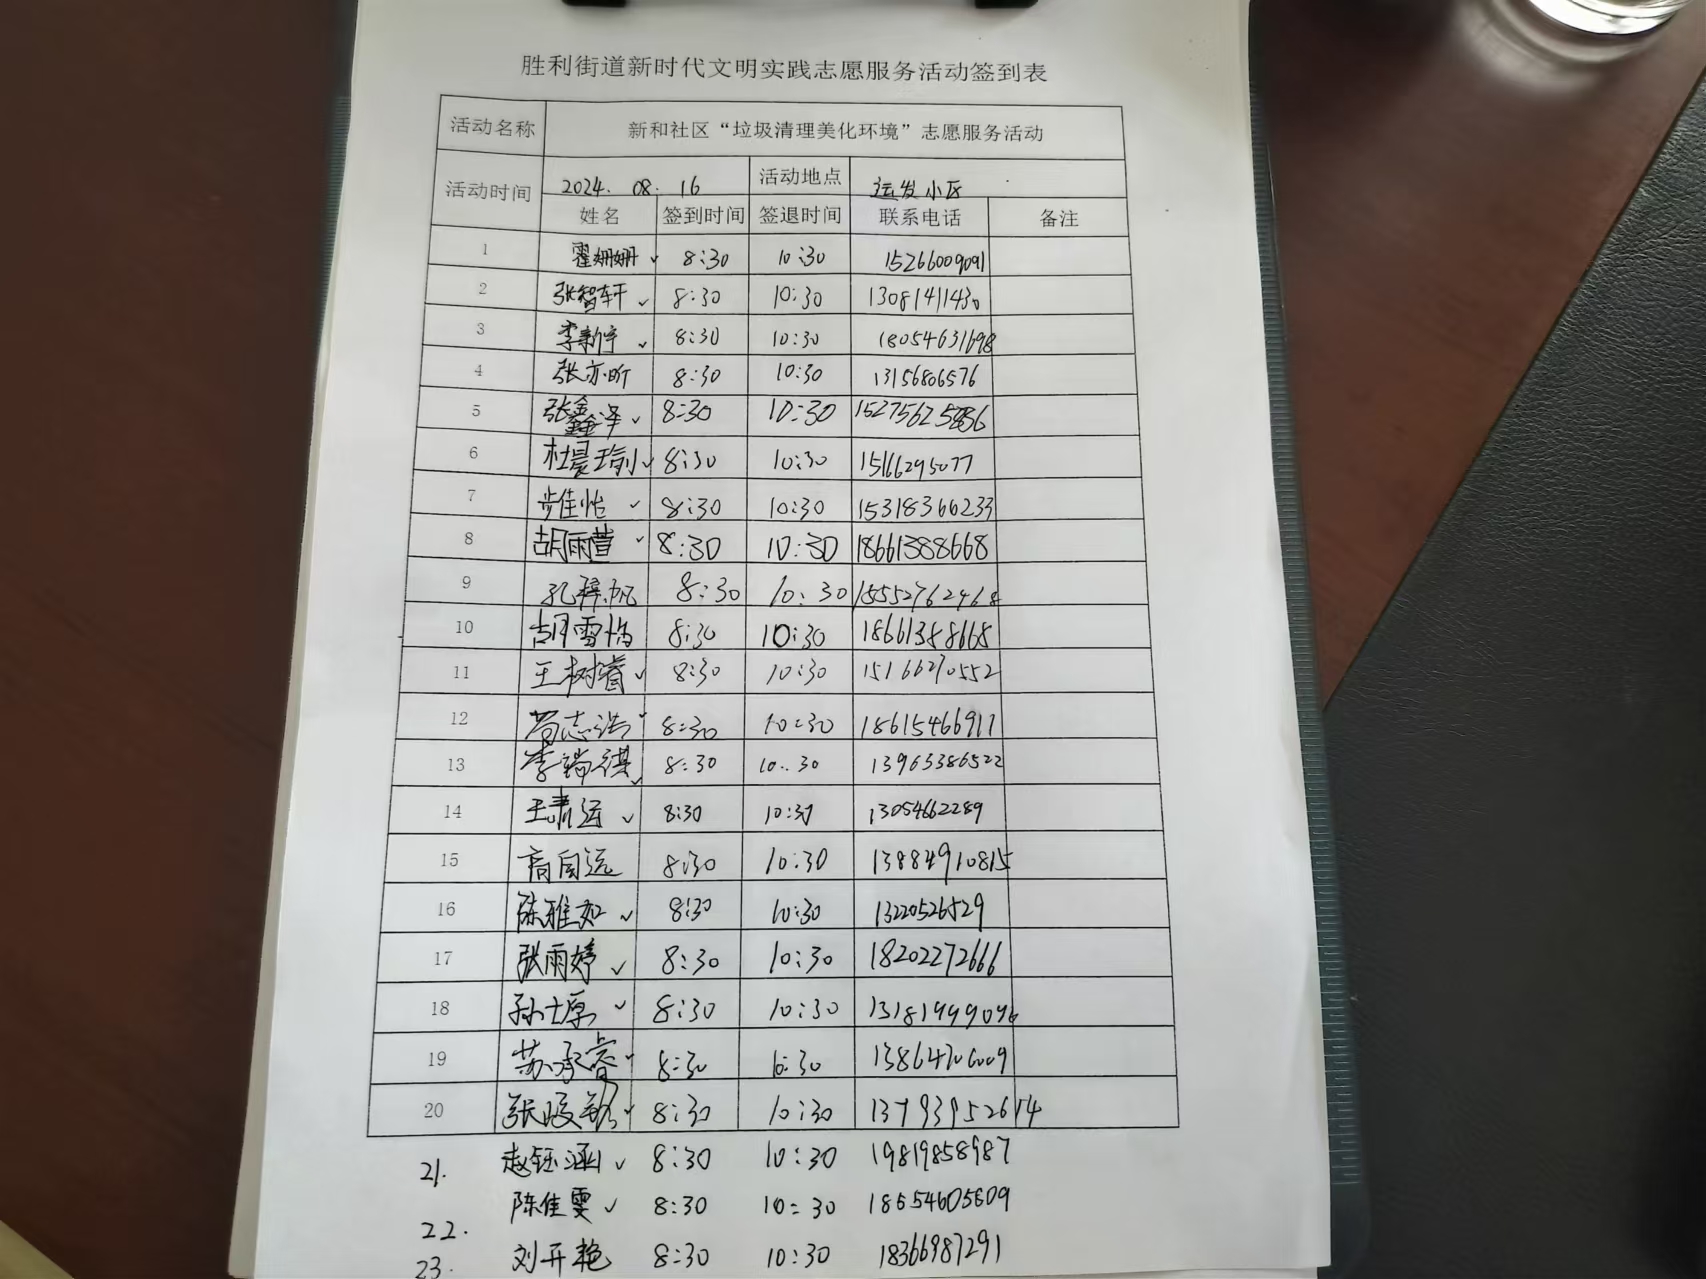 胜利街道新时代文明实践志愿服务活动签到表
活动名称 新和社区“垃圾清理美化环境”志愿服务活动
活动时间 2024. 08. 16 活动地点 运发小区
姓名 签到时间 签退时间 联系电话 备注
1 翟姗姗 ✓ 8:30 10:30 15266009091
2 张智轩 ✓ 8:30 10:30 13081411430
3 李新宇 ✓ 8:30 10:30 18054631698
4 张亦昕 8:30 10:30 13156806576
5 张鑫泽 ✓ 8:30 10:30
6 杜晨瑜 ✓ 8:30 10:30 15166295077
7 步佳怡 ✓ 8:30 10:30 15318366233
8 胡雨萱 ✓ 8:30 10:30 18661388668
9 8:30 10:30 15552762468
10 8:30 10:30 18661388668
11 王树睿 ✓ 8:30 10:30 15166270552
12 苟志浩 ✓ 8:30 10:30 18615466911
13 李瑞祺 ✓ 8:30 10:30 13963386522
14 王清运 ✓ 8:30 10:30 13054662289
15 商自远 8:30 10:30 13884910815
16 陈雅如 ✓ 8:30 10:30 13220526529
17 张雨婷 ✓ 8:30 10:30 18202272666
18 孙士厚 ✓ 8:30 10:30 13181999096
19 苏承睿 ✓ 8:30
20 8:30 10:30
21. 赵钰涵 ✓ 8:30 10:30 19819858987
22. 陈佳雯 ✓ 8:30 10:30 18654605609
23. 刘开艳 8:30 10:30 18366987291